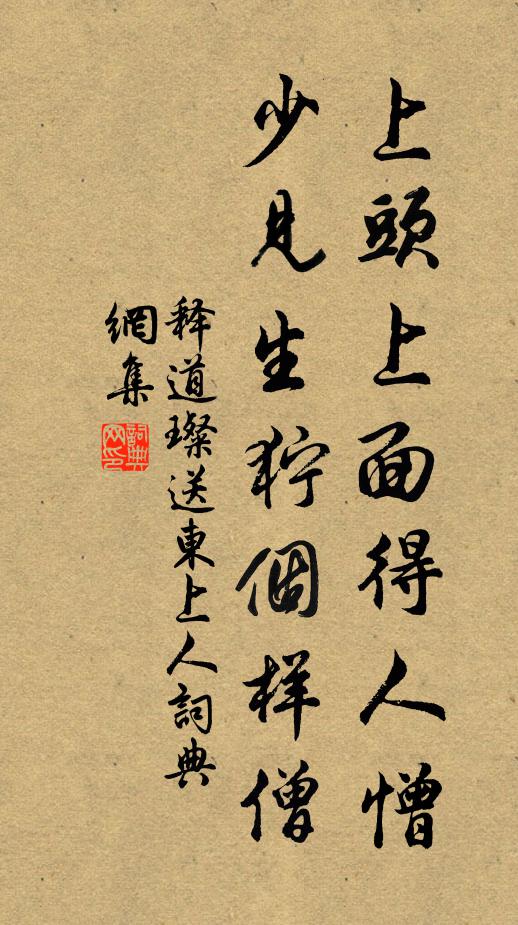 上頭上面得人憎
少見生狞個样僧
释道璨送東上人詞典
網集
詞典
网印